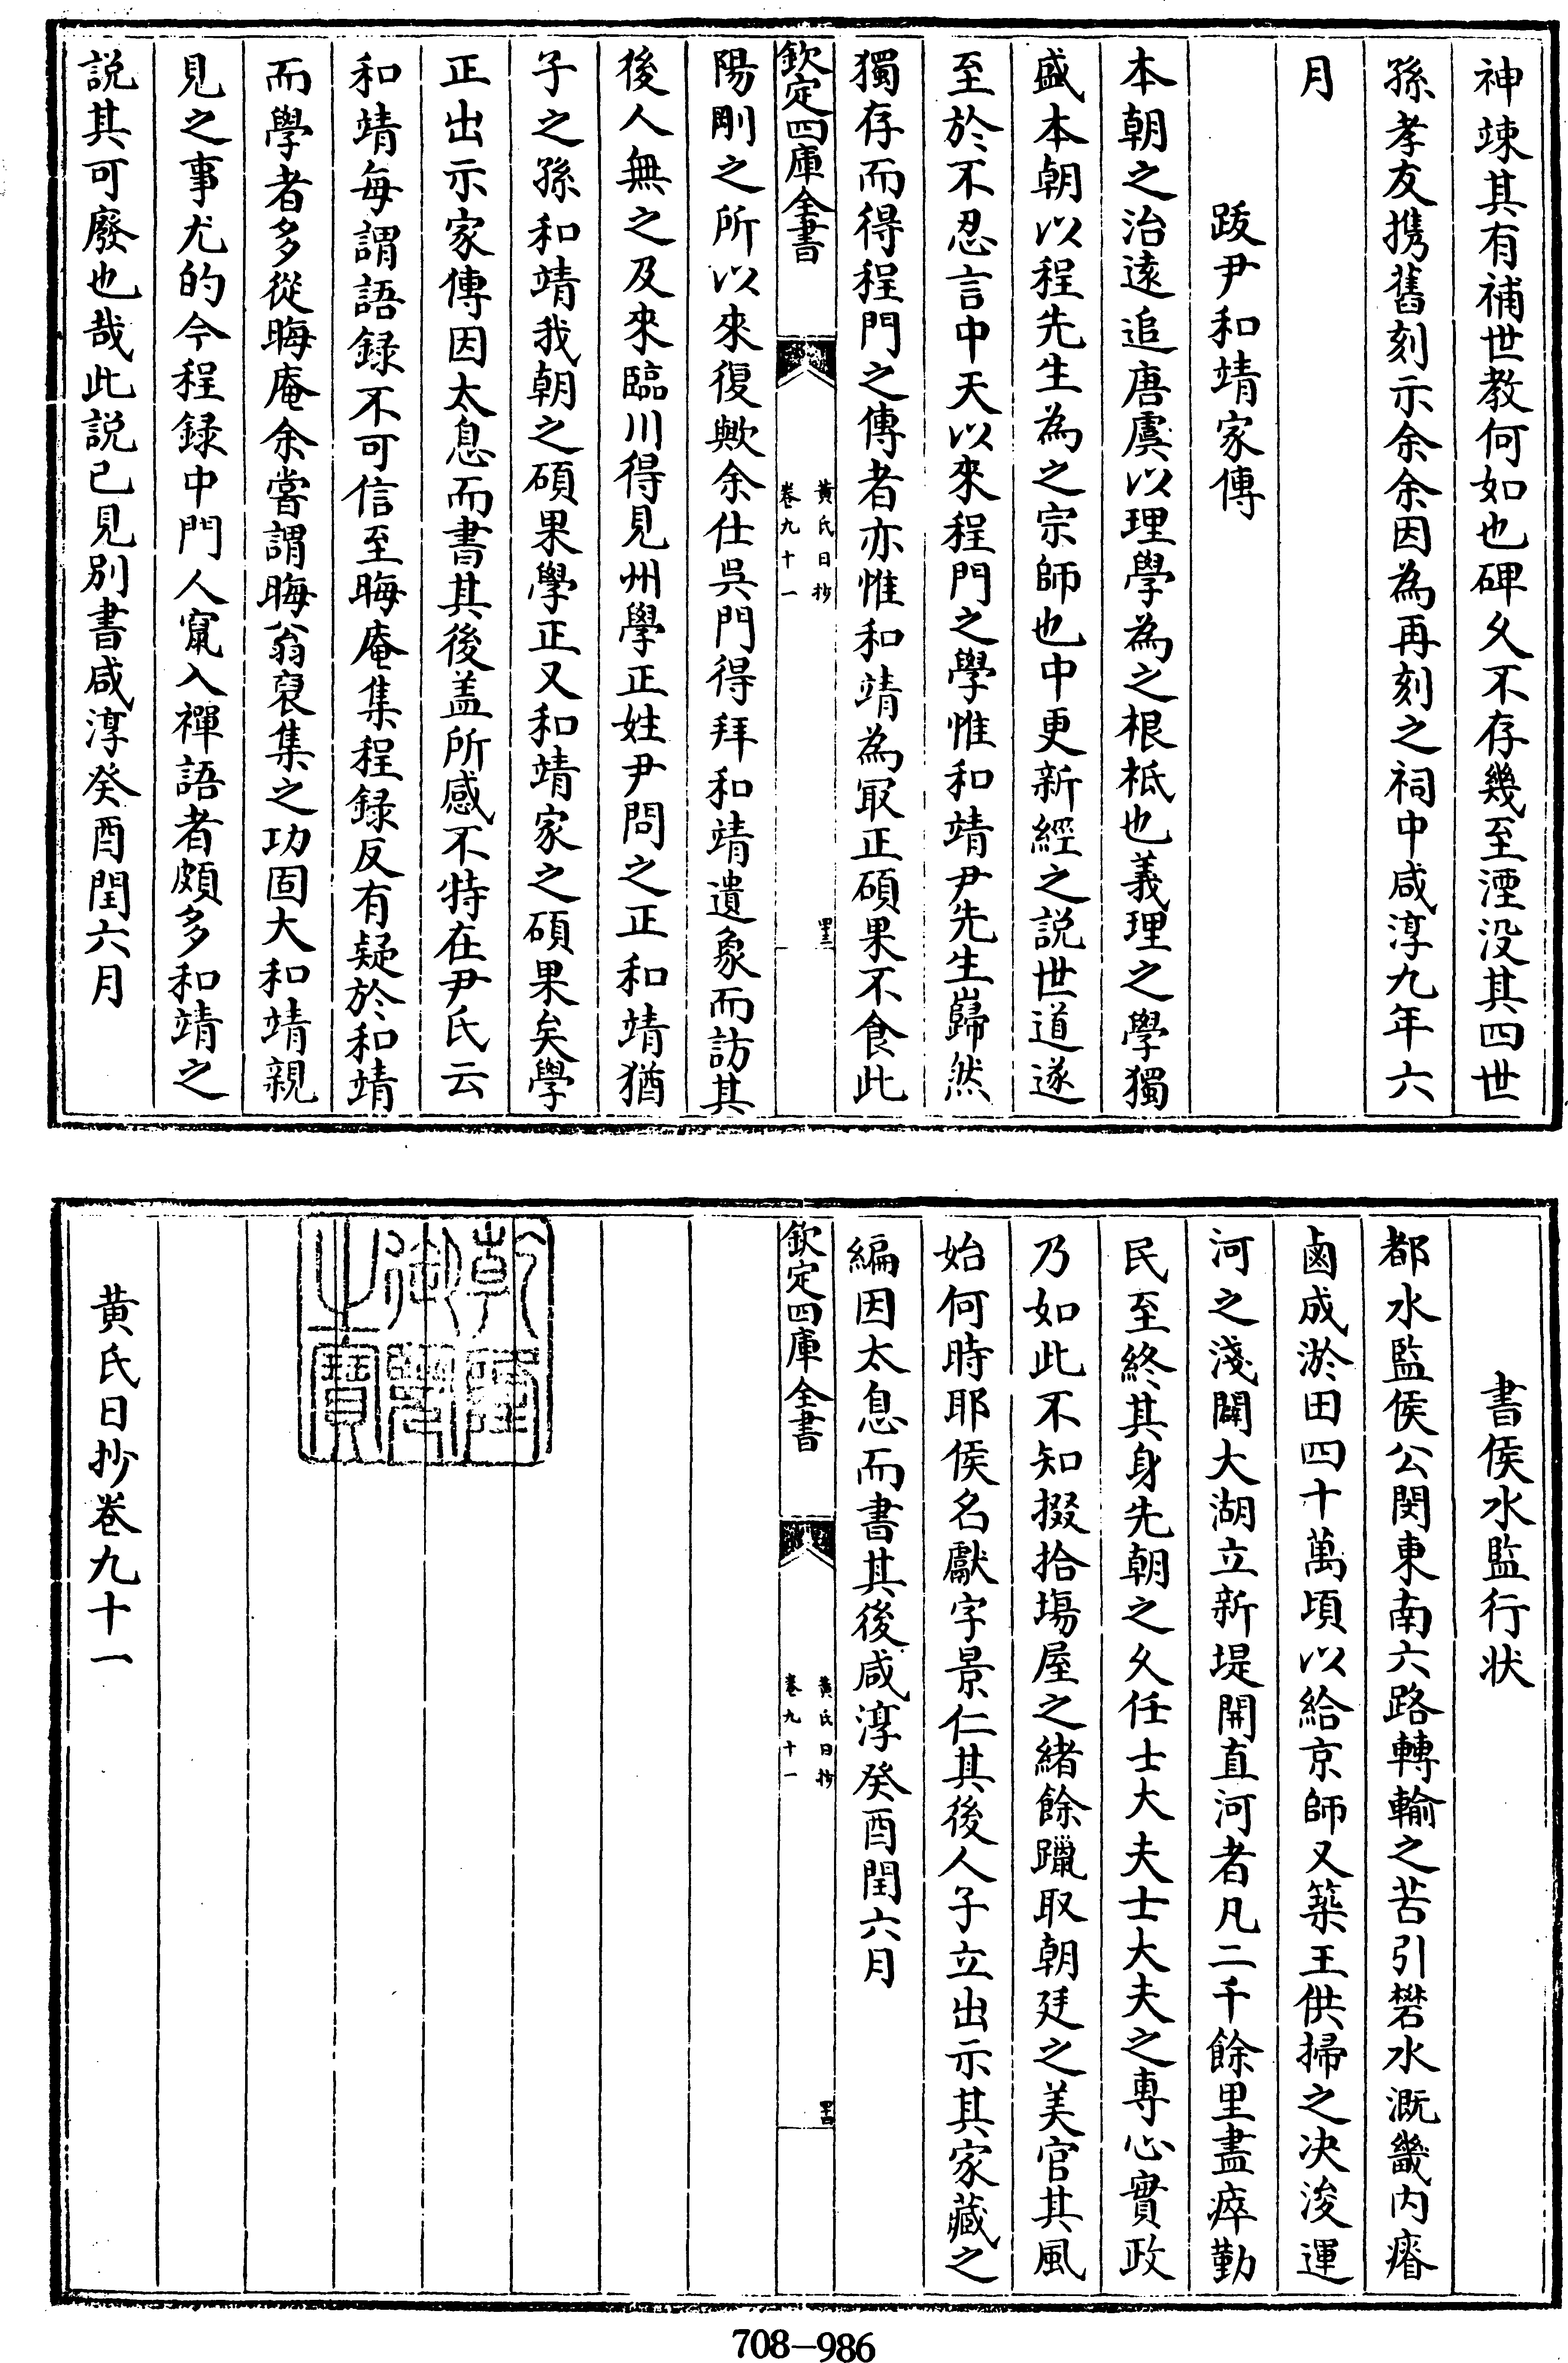 神竦其有補世教何如也碑久不存幾至湮没其四世
孫孝友携舊刻示余余因為再刻之祠中咸淳九年六
月
跋尹和靖家傳
本朝之治遠追唐虞以理學為之根柢也義理之學獨
盛本朝以程先生為之宗師也中更新經之説世道遂
至於不忍言中天以來程門之學惟和靖尹先生巋然
獨存而得程門之傳者亦惟和靖為㝡正碩果不食此
欽定四庫全書
黄氏日抄
卷九十一
四十三
陽剛之所以來復歟余仕吳門得拜和靖遺象而訪其
後人無之及來臨川得見州學正姓尹問之正和靖猶
子之孫和靖我朝之碩果學正又和靖家之碩果矣學
正出示家傳因太息而書其後盖所感不特在尹氏云
和靖每謂語録不可信至晦庵集程録反有疑於和靖
而學者多從晦庵余嘗謂晦翁裒集之功固大和靖親
見之事尤的今程録中門人竄入禪語者頗多和靖之
説其可廢也哉此説已見別書咸淳癸酉閏六月
書侯水監行狀
都水監侯公閔東南六路轉輸之苦引礬水溉畿内瘠
鹵成淤田四十萬頃以給京師又築王供掃之决浚運
河之淺闢大湖立新堤開直河者凡二千餘里盡瘁勤
民至終其身先朝之久任士大夫士大夫之專心實政
乃如此不知掇拾塲屋之緒餘躐取朝廷之美官其風
始何時耶侯名獻字景仁其後人子立出示其家藏之
編因太息而書其後咸淳癸酉閏六月
欽定四庫全書
黄氏日抄
卷九十一
四十四
乾隆
御覽
之寶
黄氏日抄卷九十一
708-986